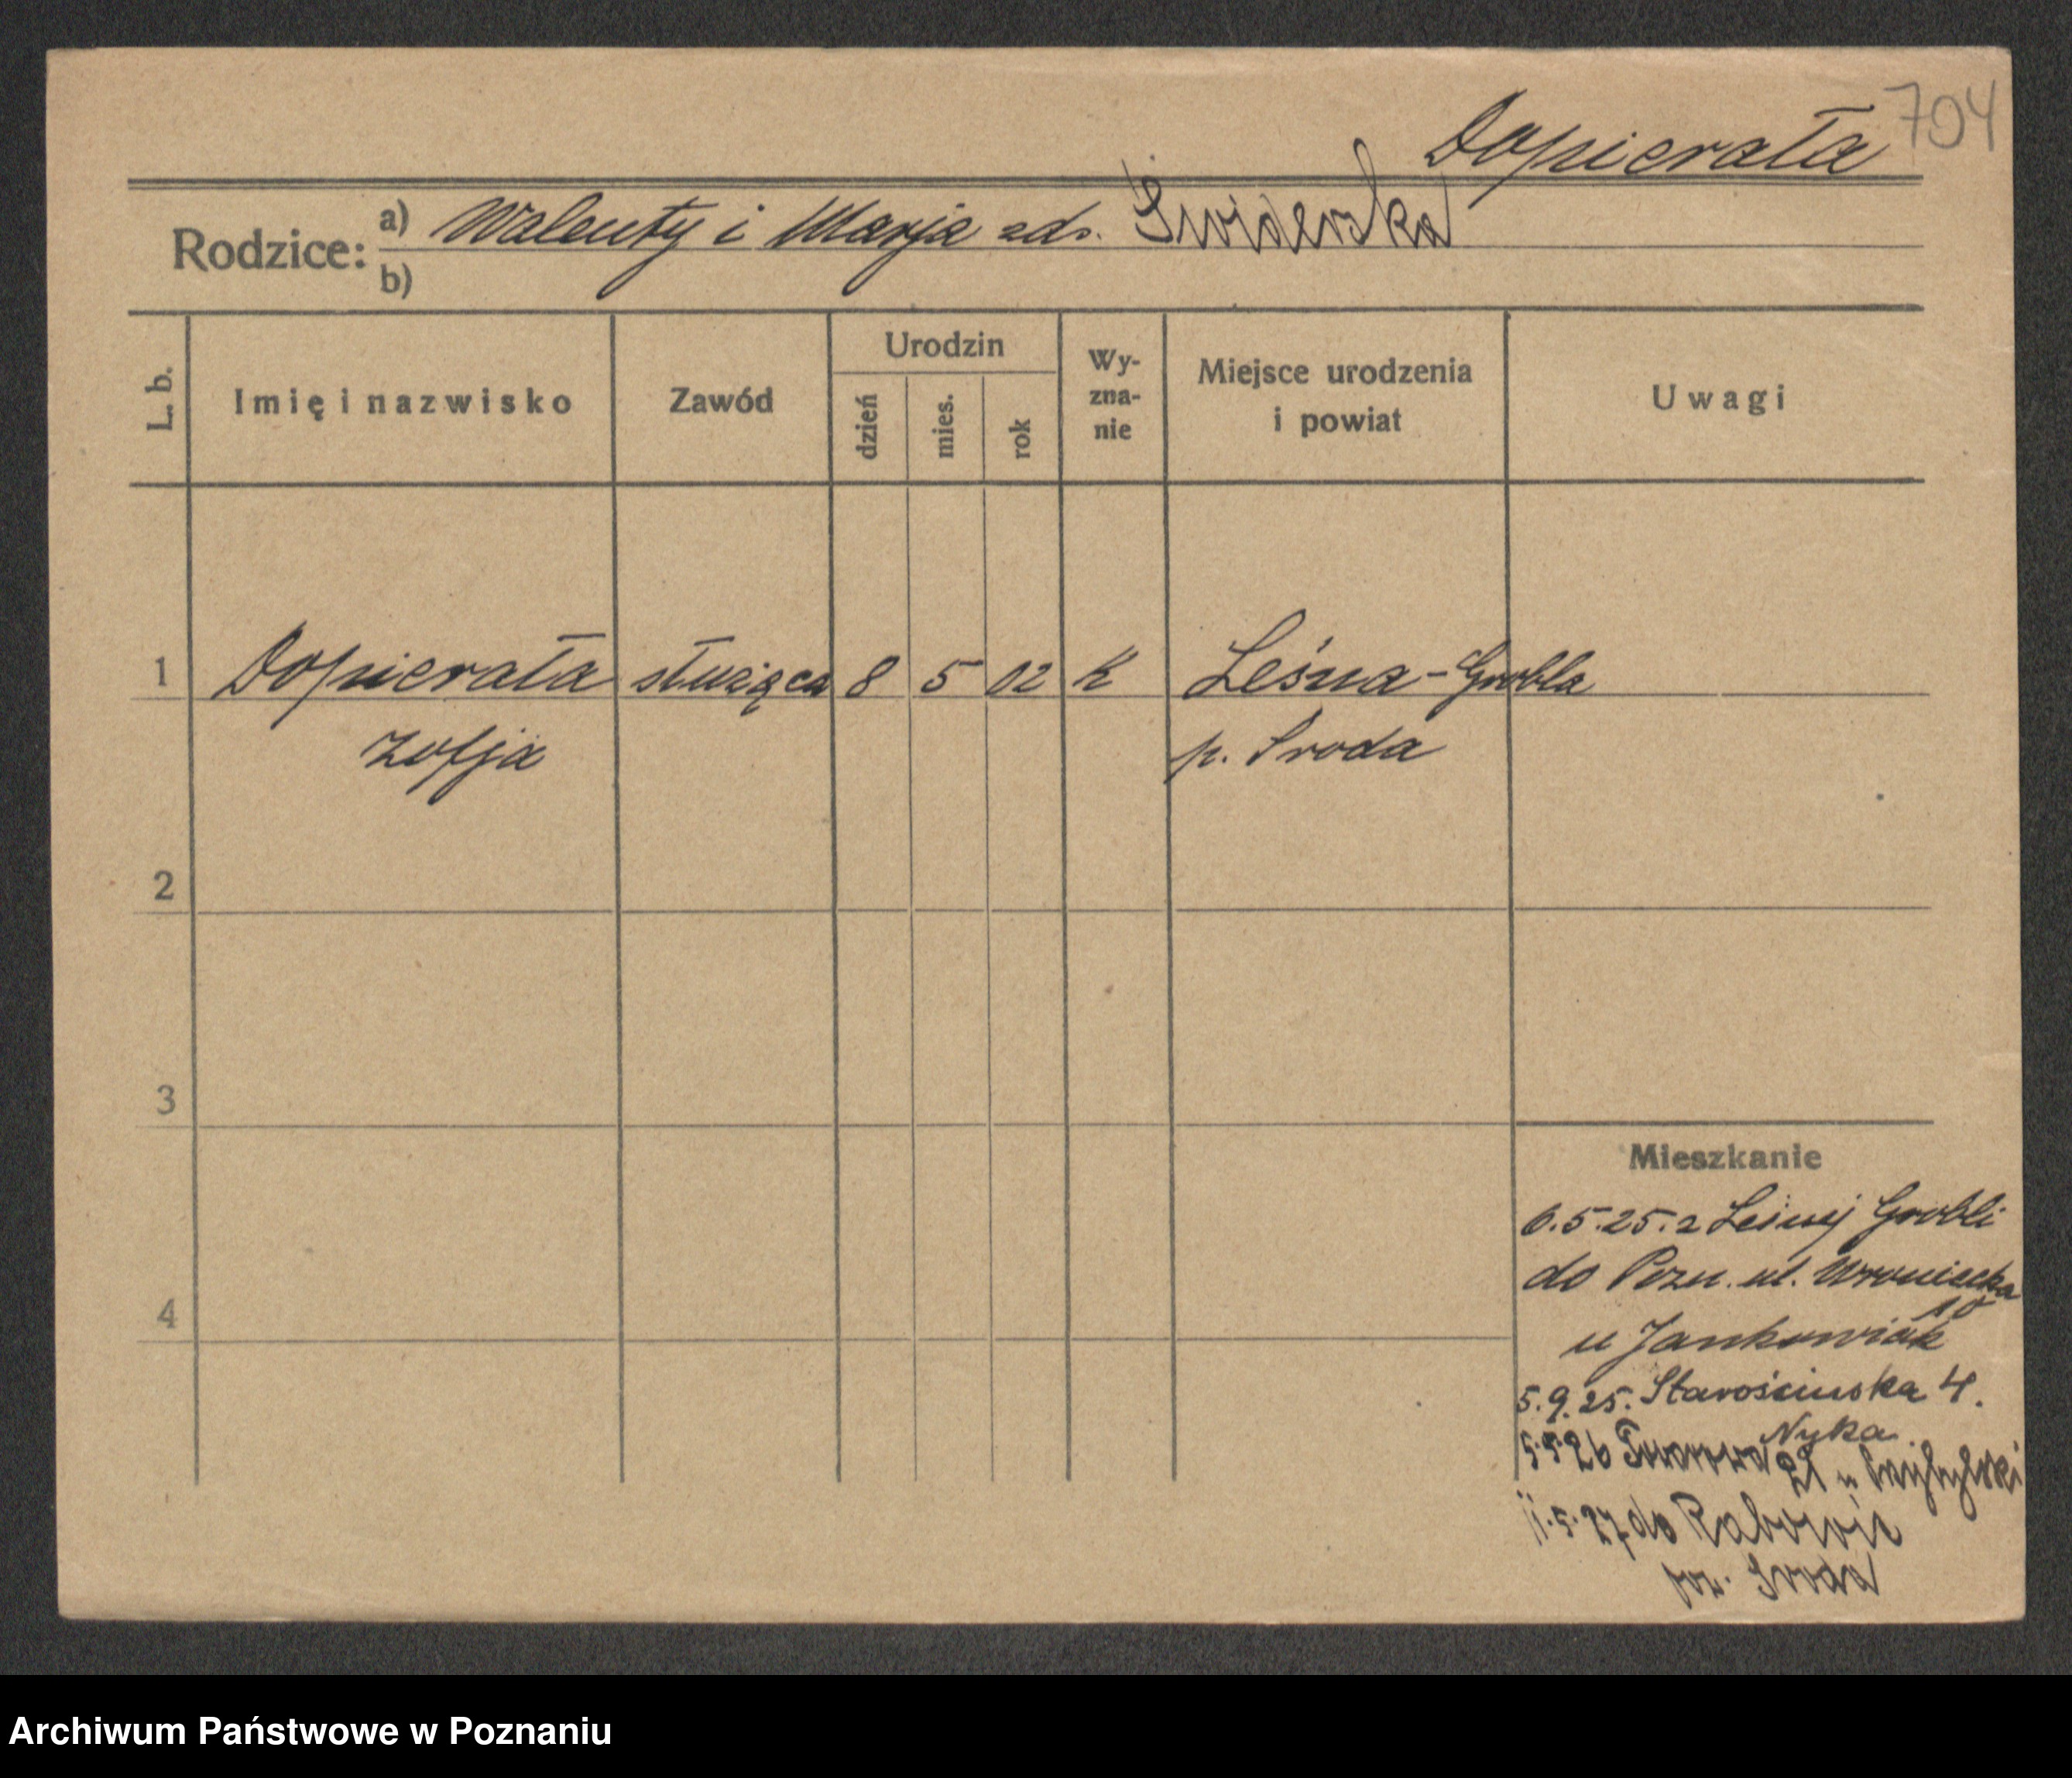 704
Dopierała
Rodzice: a) Walenty i Marja zd. Świderska
b)
L. b.
Imię i nazwisko
Zawód
Urodzin
dzień
mies.
rok
Wy-
zna-
nie
Miejsce urodzenia
i powiat
Uwagi
1 Dopierała służąca 8 5 02 K Leśna-Grobla
Zofja p. Środa
2
3
4
Mieszkanie
6.5.25. z Leśnej Grobli
do Pozn. ul. Wroniecka
10
u Jankowiak
5.9.25. Starościnska 4.
Nyka
26 21 u Przybylski
11.5.27 do
pow. Środa
Archiwum Państwowe w Poznaniu